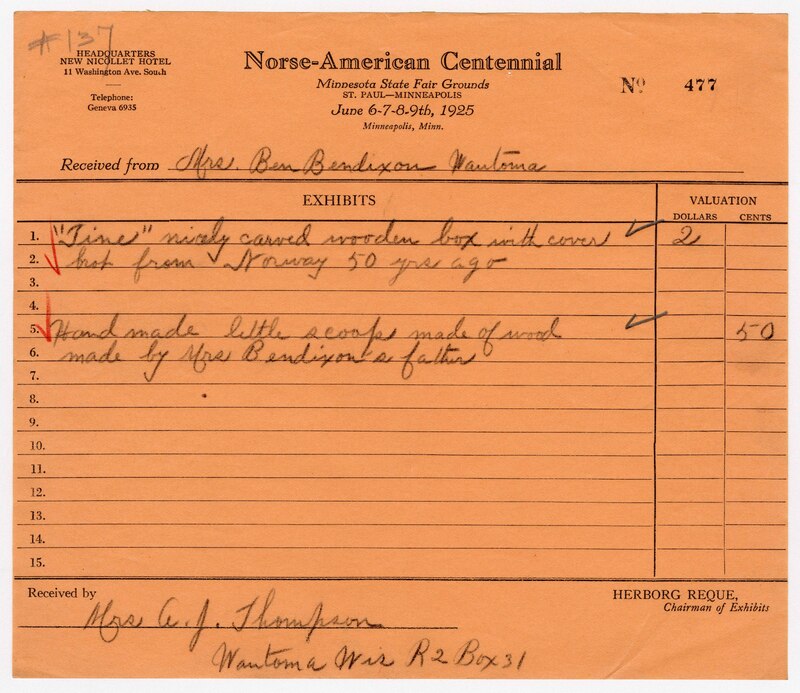 #137
HEADQUARTERS
NEW NICOLLET HOTEL
11 Washington Ave. South
Telephone:
Geneva 6935
Norse-American Centennial
Minnesota State Fair Grounds
ST. PAUL—MINNEAPOLIS
June 6-7-8-9th, 1925
Minneapolis, Minn.
Nº 477
Received from Mrs. Ben Bendixon Wautoma
EXHIBITS
VALUATION
DOLLARS CENTS
1. "Tine" nicely carved wooden box with cover ✓ 2
2. brot from Norway 50 yrs ago
3.
4.
5. Hand made little scoop made of wood ✓ 50
6. made by Mrs Bendixon's father
7.
8.
9.
10.
11.
12.
13.
14.
15.
Received by
Mrs A. J. Thompson
Wautoma Wis R2 Box 31
HERBORG REQUE,
Chairman of Exhibits